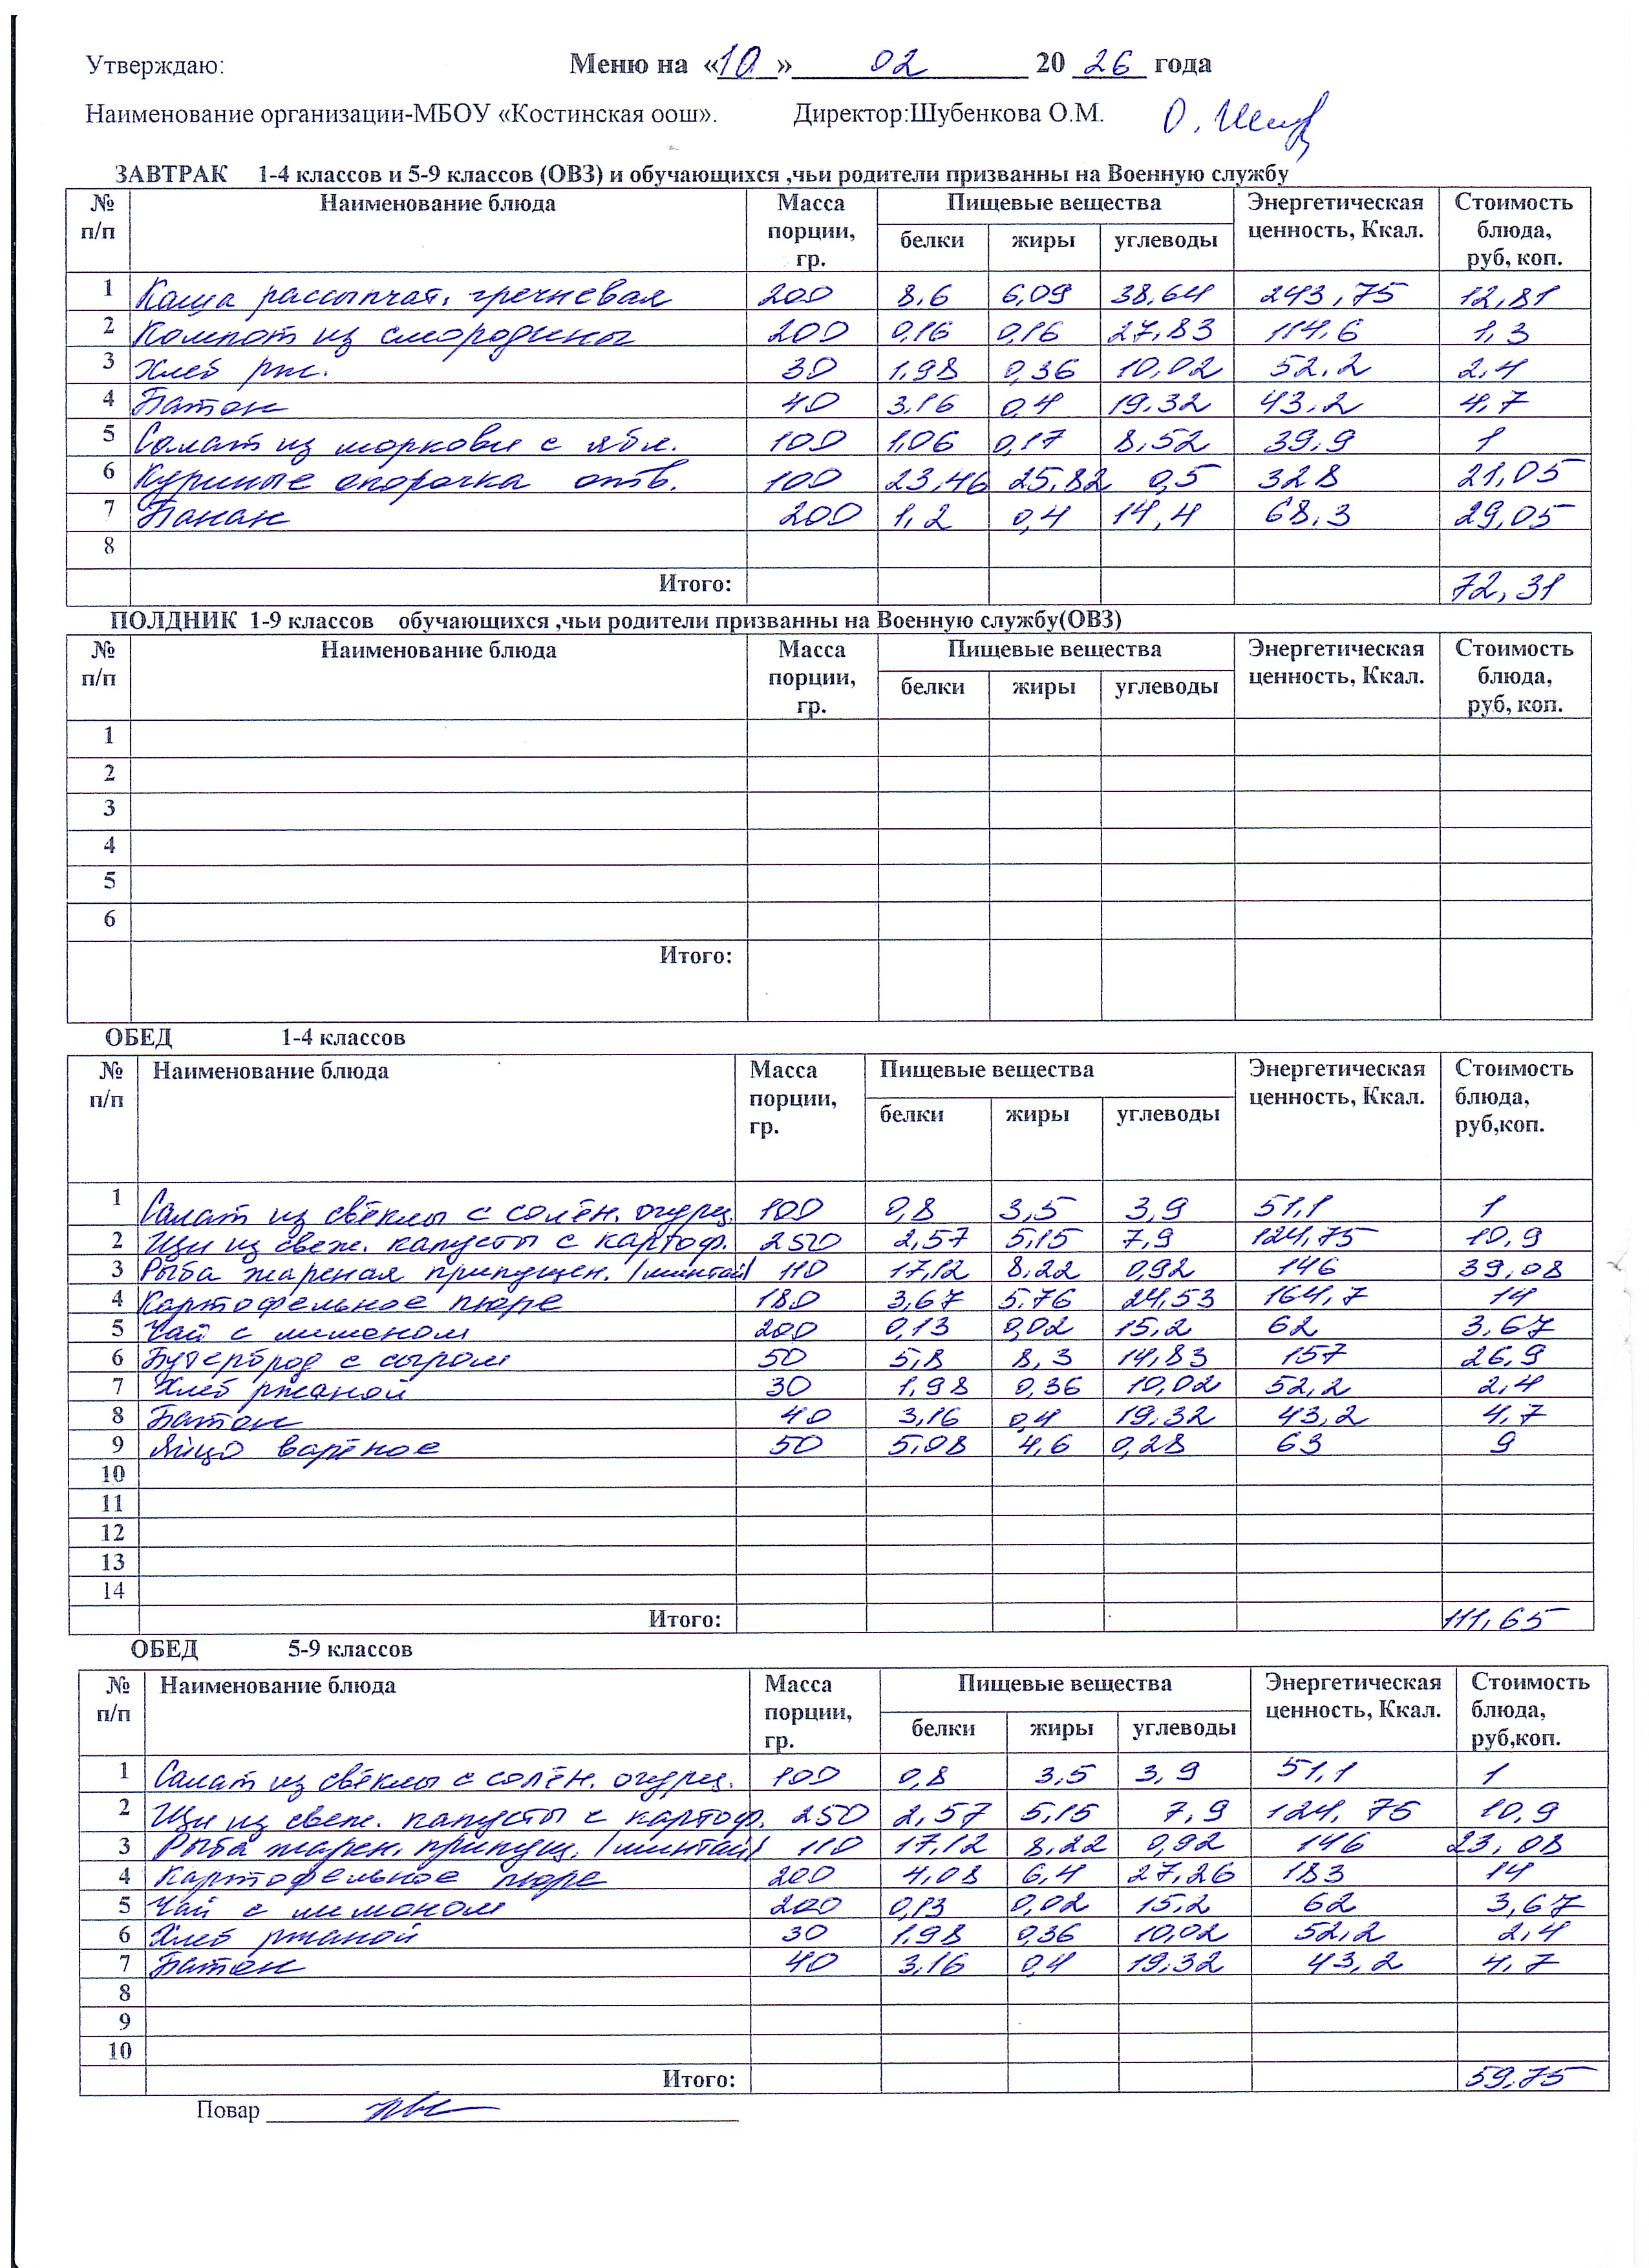 Утверждаю: Меню на «10» 02 20 26 года
Наименование организации-МБОУ «Костинская оош». Директор:Шубенкова О.М.
ЗАВТРАК 1-4 классов и 5-9 классов (ОВЗ) и обучающихся ,чьи родители призванны на Военную службу
№ п/п Наименование блюда Масса порции, гр. Пищевые вещества Энергетическая ценность, Ккал. Стоимость блюда, руб, коп.
белки жиры углеводы
1 Каша рассыпчат. гречневая 200 8,6 6,09 38,64 243,75 12,81
2 Компот из смородины 200 0,16 0,16 27,83 114,6 1,3
3 Хлеб рж. 30 1,98 0,36 10,02 52,2 2,4
4 Батон 40 3,16 0,4 19,32 43,2 4,7
5 Салат из моркови с ябл. 100 1,06 0,17 8,52 39,9 1
6 Куриные окорочка отв. 100 23,46 25,82 0,5 328 21,05
7 Банан 200 1,2 0,4 14,4 68,3 29,05
8
Итого: 72,31
ПОЛДНИК 1-9 классов обучающихся ,чьи родители призванны на Военную службу(ОВЗ)
№ п/п Наименование блюда Масса порции, гр. Пищевые вещества Энергетическая ценность, Ккал. Стоимость блюда, руб, коп.
белки жиры углеводы
1
2
3
4
5
6
Итого:
ОБЕД 1-4 классов
№ п/п Наименование блюда Масса порции, гр. Пищевые вещества Энергетическая ценность, Ккал. Стоимость блюда, руб,коп.
белки жиры углеводы
1 Салат из свёклы с солён. огурец. 100 0,8 3,5 3,9 51,1 1
2 Щи из свеж. капусты с картоф. 250 2,57 5,15 7,9 124,75 10,9
3 Рыба жареная припущен. /минтай/ 110 17,12 8,22 0,92 146 39,08
4 Картофельное пюре 180 3,67 5.76 24,53 164,7 14
5 Чай с лимоном 200 0,13 0,02 15,2 62 3,67
6 Бутерброд с сыром 50 5,8 8,3 14,83 157 26,9
7 Хлеб ржаной 30 1,98 0,36 10,02 52,2 2,4
8 Батон 40 3,16 0,4 19,32 43,2 4,7
9 Яйцо варёное 50 5,08 4,6 0,28 63 9
10
11
12
13
14
Итого: 111,65
ОБЕД 5-9 классов
№ п/п Наименование блюда Масса порции, гр. Пищевые вещества Энергетическая ценность, Ккал. Стоимость блюда, руб,коп.
белки жиры углеводы
1 Салат из свёклы с солён. огурец. 100 0,8 3,5 3,9 51,1 1
2 Щи из свеж. капусты с картоф. 250 2,57 5,15 7,9 124,75 10,9
3 Рыба жарен. припущ. /минтай/ 110 17,12 8,22 0,92 146 23,08
4 Картофельное пюре 200 4,08 6,4 27,26 183 14
5 Чай с лимоном 200 0,13 0,02 15,2 62 3,67
6 Хлеб ржаной 30 1,98 0,36 10,02 52,2 2,4
7 Батон 40 3,16 0,4 19,32 43,2 4,7
8
9
10
Итого: 59,75
Повар